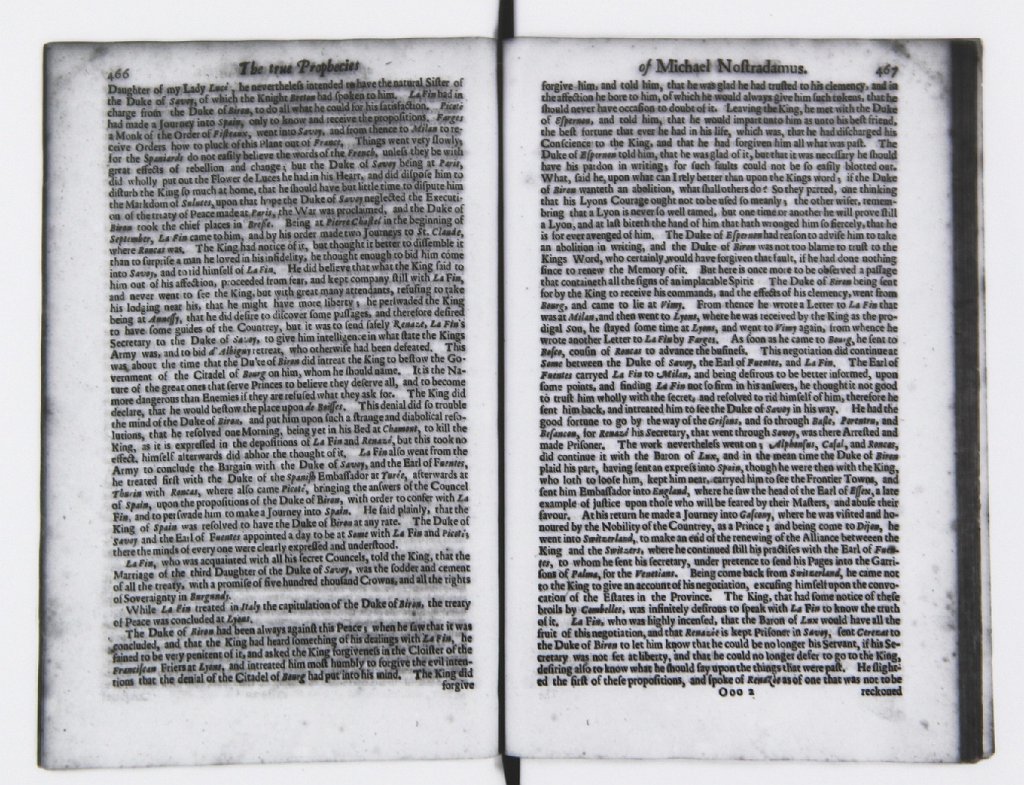 466
The true Prophecies
Daughter of my Lady Luce, he nevertheless intended to have the natural Sister of
the Duke of Savoy, of which the Knight Breton had spoken to him. La Fin had in
charge from the Duke of Biron, to do all what he could for his satisfaction. Picoté
had made a Journey into Spain, only to know and receive the propositions. Farges
a Monk of the Order of Fisteaux, went into Savoy, and from thence to Milan to re-
ceive Orders how to pluck of this Plant out of France. Things went very slowly,
for the Spaniards do not easily believe the words of the French, unless they be with
great effects of rebellion and change; but the Duke of Savoy being at Paris,
did wholly put out the Flower de Luces he had in his Heart, and did dispose him to
disturb the King so much at home, that he should have but little time to dispute him
the Markdom of Saluces, upon that hope the Duke of Savoy neglected the Executi-
on of the treaty of Peace made at Paris, the War was proclaimed, and the Duke of
Biron took the chief places in Bresse. Being at Pierre Chastel in the beginning of
September, La Fin came to him, and by his order made two Journeys to St. Claude,
where Roncas was. The King had notice of it, but thought it better to dissemble it
than to surprise a man he loved in his infidelity, he thought enough to bid him come
into Savoy, and to rid himself of La Fin. He did believe that what the King said to
him out of his affection, proceeded from fear, and kept company still with La Fin,
and never went to see the King, but with great many attendants, refusing to take
his lodging near his, that he might have more liberty; he perswaded the King
being at Annessy, that he did desire to discover some passages, and therefore desired
to have some guides of the Countrey, but it was to send safely Renazé, La Fin's
Secretary to the Duke of Savoy, to give him intelligence in what state the Kings
Army was, and to bid d'Albigny retreat, who otherwise had been defeated. This
was about the time that the Duke of Biron did intreat the King to bestow the Go-
vernment of the Citadel of Bourg on him, whom he should name. It is the Na-
ture of the great ones that serve Princes to believe they deserve all, and to become
more dangerous than Enemies if they are refused what they ask for. The King did
declare, that he would bestow the place upon de Boisses. This denial did so trouble
the mind of the Duke of Biron, and put him upon such a strange and diabolical reso-
lutions, that he resolved one Morning, being yet in his Bed at Chamont, to kill the
King, as it is expressed in the depositions of La Fin and Renazé, but this took no
effect, himself afterwards did abhor the thought of it. La Fin also went from the
Army to conclude the Bargain with the Duke of Savoy, and the Earl of Fuentes,
he treated first with the Duke of the Spanish Embassador at Turée, afterwards at
Thurin with Roncas, where also came Picoté, bringing the answers of the Councel
of Spain, upon the propositions of the Duke of Biron, with order to confer with La
Fin, and to perswade him to make a Journey into Spain. He said plainly, that the
King of Spain was resolved to have the Duke of Biron at any rate. The Duke of
Savoy and the Earl of Fuentes appointed a day to be at Some with La Fin and Picoté,
there the minds of every one were clearly expressed and understood.
La Fin, who was acquainted with all his secret Councels, told the King, that the
Marriage of the third Daughter of the Duke of Savoy, was the sodder and cement
of all the treaty, with a promise of five hundred thousand Crowns, and all the rights
of Soveraignty in Burgundy.
While La Fin treated in Italy the capitulation of the Duke of Biron, the treaty
of Peace was concluded at Lyons.
The Duke of Biron had been always against this Peace; when he saw that it was
concluded, and that the King had heard something of his dealings with La Fin, he
fained to be very penitent of it, and asked the King forgiveness in the Cloister of the
Franciscan Friers at Lyons, and intreated him most humbly to forgive the evil inten-
tions that the denial of the Citadel of Bourg had put into his mind. The King did
forgive
of Michael Nostradamus.
467
forgive him, and told him, that he was glad he had trusted to his clemency, and in
the affection he bore to him, of which he would always give him such tokens, that he
should never have occasion to doubt of it. Leaving the King, he met with the Duke
of Espernon, and told him, that he would impart unto him as unto his best friend,
the best fortune that ever he had in his life, which was, that he had discharged his
Conscience to the King, and that he had forgiven him all what was past. The
Duke of Espernon told him, that he was glad of it, but that it was necessary he should
have his pardon in writing, for such faults could not be so easily blotted out.
What, said he, upon what can I rely better than upon the Kings word, if the Duke
of Biron wanteth an abolition, what shall others do? So they parted, one thinking
that his Lyons Courage ought not to be used so meanly; the other wiser, remem-
bring that a Lyon is never so well tamed, but one time or another he will prove still
a Lyon, and at last biteth the hand of him that hath wronged him so fiercely, that he
is for ever avenged of him. The Duke of Espernon had reason to advise him to take
an abolition in writing, and the Duke of Biron was not too blame to trust to the
Kings Word, who certainly would have forgiven that fault, if he had done nothing
since to renew the Memory of it. But here is once more to be observed a passage
that containeth all the signs of an implacable Spirit The Duke of Biron being sent
for by the King to receive his commands, and the effects of his clemency, went from
Bourg, and came to lie at Vimy. From thence he wrote a Letter to La Fin that
was at Milan, and then went to Lyons, where he was received by the King as the pro-
digal Son, he stayed some time at Lyons, and went to Vimy again, from whence he
wrote another Letter to La Fin by Farges. As soon as he came to Bourg, he sent to
Bosco, cousin of Roncas to advance the business. This negotiation did continue at
Some between the Duke of Savoy, the Earl of Fuentes, and La Fin. The Earl of
Fuentes carryed La Fin to Milan, and being desirous to be better informed, upon
some points, and finding La Fin not so firm in his answers, he thought it not good
to trust him wholly with the secret, and resolved to rid himself of him, therefore he
sent him back, and intreated him to see the Duke of Savoy in his way. He had the
good fortune to go by the way of the Grisons, and so through Basle, Porentru, and
Besancon, for Renazé his Secretary, that went through Savoy, was there Arrested and
made Prisoner. The work nevertheless went on; Alphonsus, Casal, and Roncas,
did continue it with the Baron of Lux, and in the mean time the Duke of Biron
plaid his part, having sent an express into Spain, though he were then with the King,
who loth to loose him, kept him near, carryed him to see the Frontier Towns, and
sent him Embassador into England, where he saw the head of the Earl of Essex, a late
example of Justice upon those who will be feared by their Masters, and abuse their
favour. At his return he made a Journey into Gascony, where he was visited and ho-
noured by the Nobility of the Countrey, as a Prince; and being come to Dijon, he
went into Switzerland, to make an end of the renewing of the Alliance between the
King and the Switzers, where he continued still his practises with the Earl of Fuen-
tes, to whom he sent his secretary, under pretence to send his Pages into the Garri-
sons of Palma, for the Venetians. Being come back from Switzerland, he came not
to the King to give an account of his negotiation, excusing himself upon the convo-
cation of the Estates in the Province. The King, that had some notice of these
broils by Combelles, was infinitely desirous to speak with La Fin to know the truth
of it. La Fin, who was highly incensed, that the Baron of Lux would have all the
fruit of this negotiation, and that Renazie is kept Prisoner in Savoy, sent Cerezat to
the Duke of Biron to let him know that he could be no longer his Servant, if his Se-
cretary was not set at liberty, and that he could no longer defer to go to the King,
desiring also to know what he should say upon the things that were past. He slight-
ed the first of these propositions, and spoke of Renazie as of one that was not to be
Ooo 2
reckoned